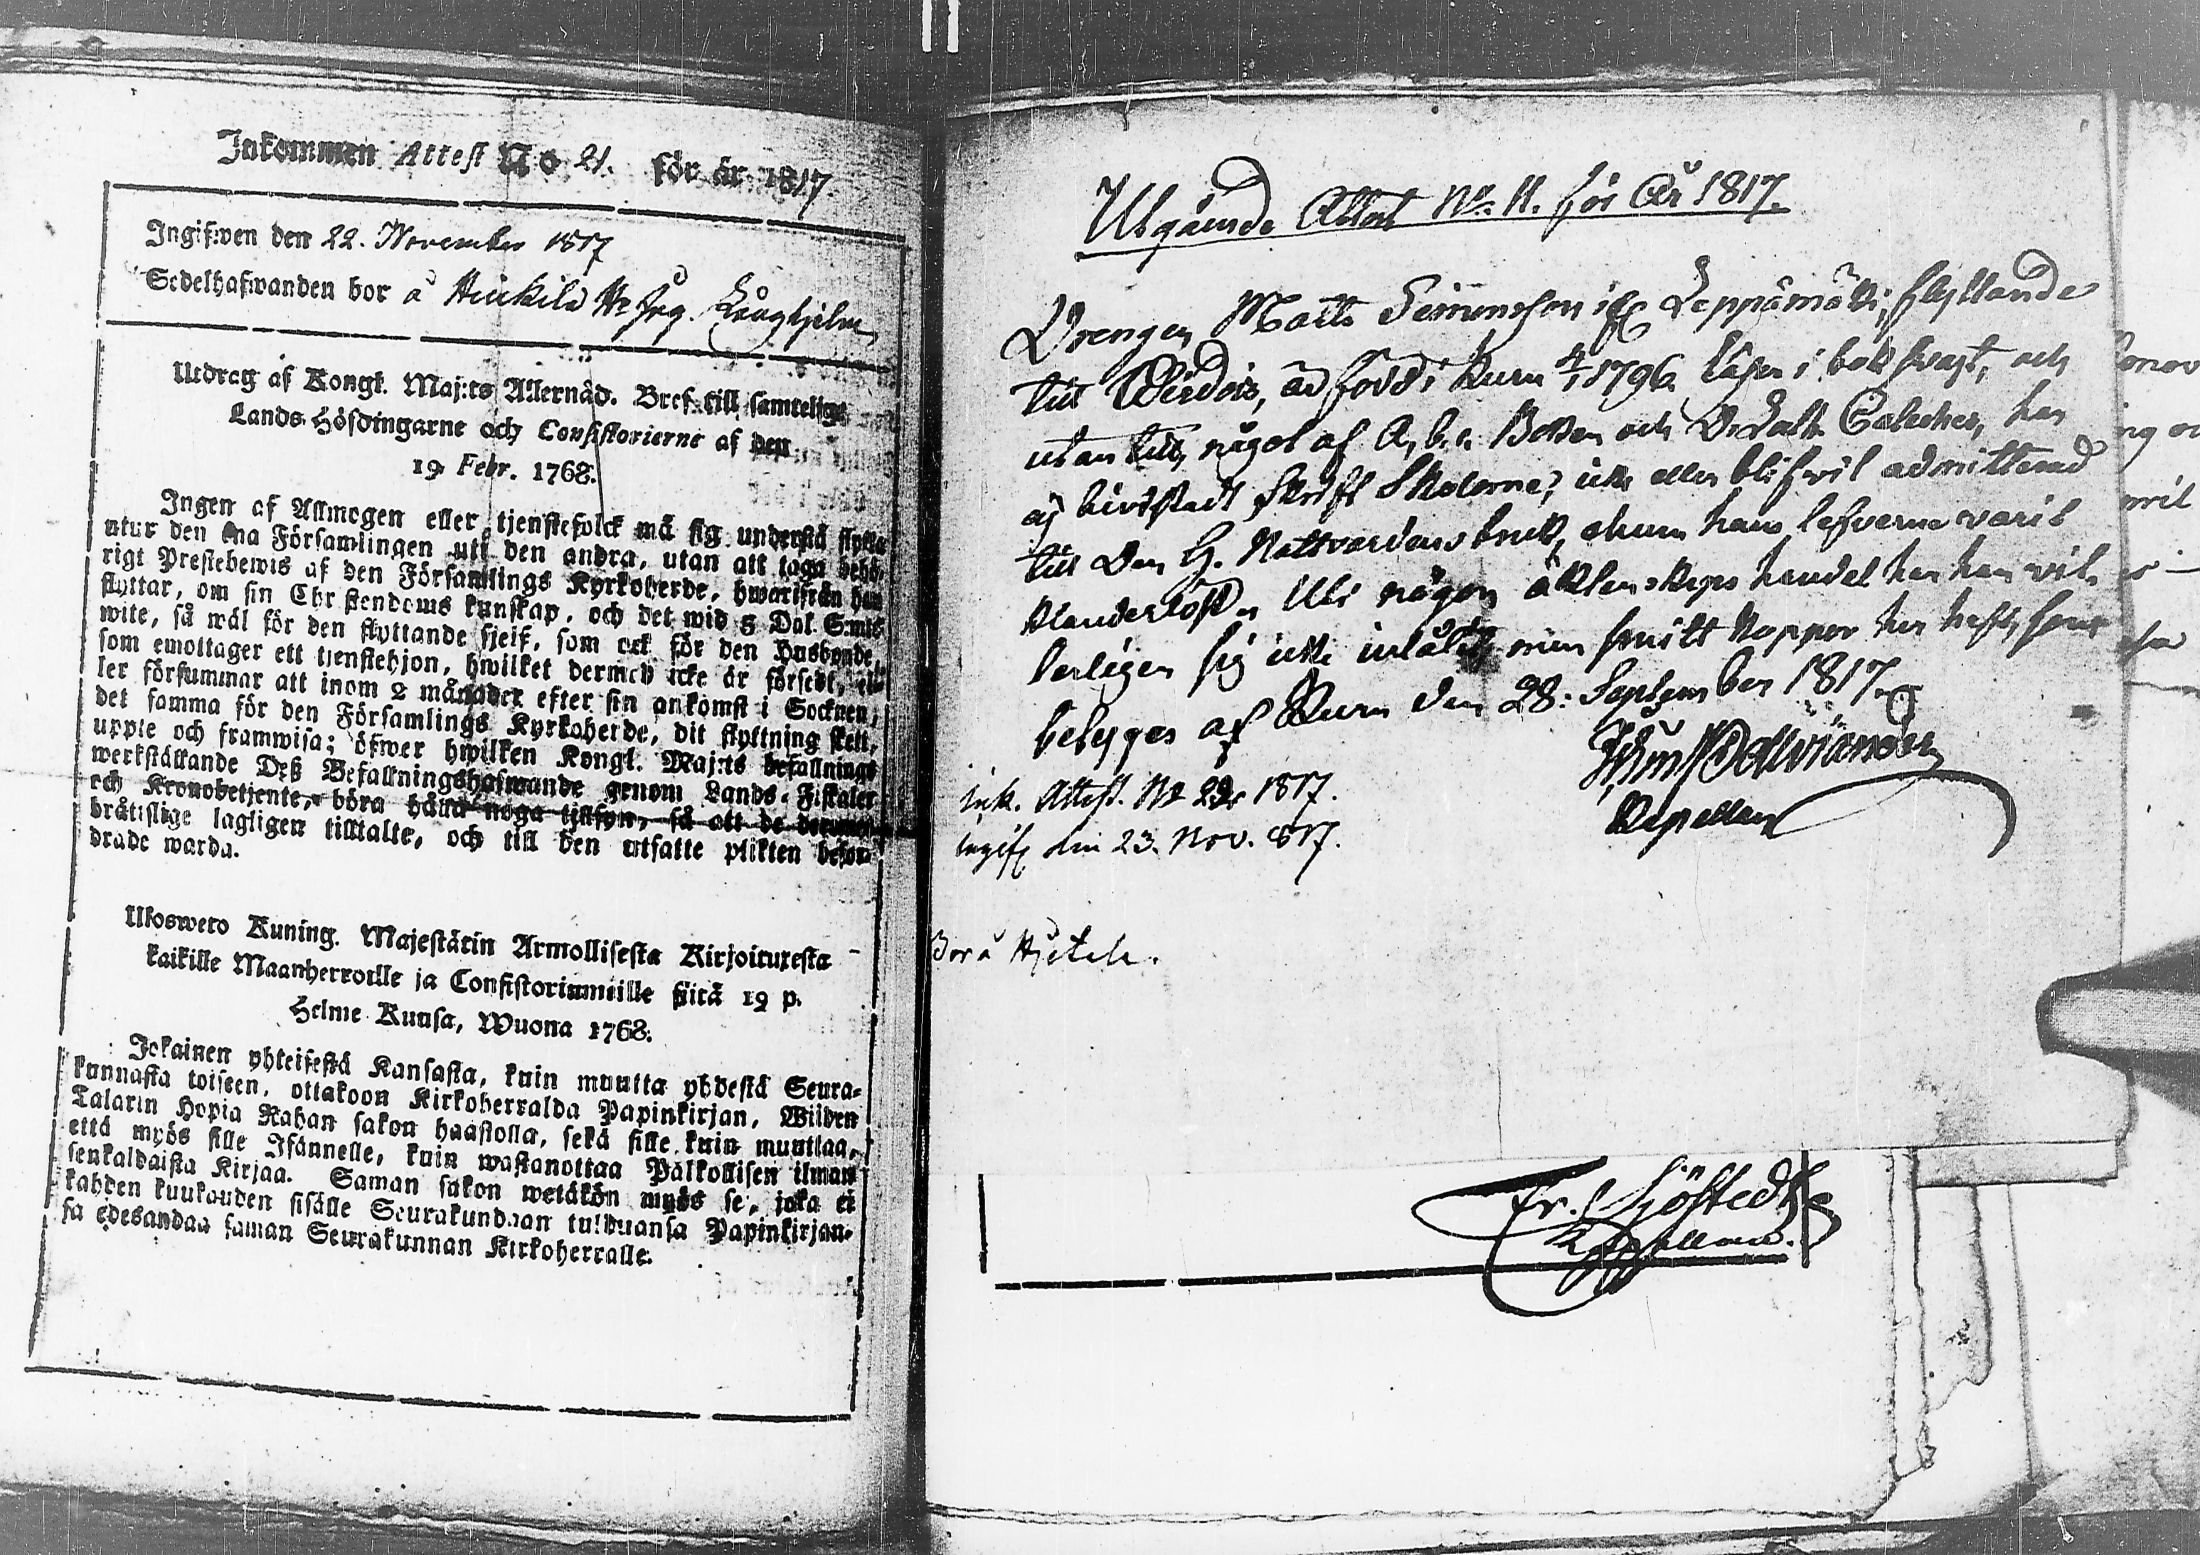 Inkommen Attest No 21. för år 1817.
Ingifwen den 22. November 1817
Sedelhafwanden bor å Heickilä
Utdrag af Kongl. Maj:ts Allernåd. Bref till samtelige
Lands-Höfdingarne och Consistorierne af den
19 Febr. 1768.
Ingen af Allmogen eller tjenstefolck må sig understå flytta
utur den ena Församlingen uti den andra, utan att taga behö-
rigt Prestebewis af den Församlings Kyrkoherde, hwarifrån han
flyttar, om sin Christendoms kunskap, och det wid 5 Dal. S:mts
wite, så wäl för den flyttande sjelf, som ock för den Husbonde,
som emottager ett tjenstehjon, hwilket dermed icke är försedt, el-
ler försummar att inom 2 månader efter sin ankomst i Socknen,
det samma för den Församlings Kyrkoherde, dit flyttning skett,
uppte och framwisa; öfwer hwilken Kongl. Maj:ts befallnings
werkställande Deß Befallningshafwande genom Lands-Fiskaler
och Kronobetjente, böra hålla noga tillsyn, så att de deremot
bråtislige lagligen tilltalte, och till den utsatte plikten befor-
drade warda.
Ulosweto Kuning. Majestätin Armollisesta Kirjoituxesta
kaikille Maanherroille ja Consistoriumeille siitä 19 p.
Helme Kuusa, Wuona 1768.
Jokainen yhteisestä Kansasta, kuin muutta yhdestä Seura-
kunnasta toiseen, ottakoon Kirkoherralda Papinkirjan, Wiiden
Talarin Hopia Rahan sakon haastolla, sekä sille kuin muuttaa,
että myös sille Isännelle, kuin wastanottaa Palkollisen ilman
senkaldaista Kirjaa. Saman sakon wetäkön myös se, joka ei
kahden kuukauden sisälle Seurakundaan tulduansa Papinkirjan-
sa edesandaa saman Seurakunnan Kirkoherralle.
Utgående Attest No. 11. för År 1817.
Drengen Matts Simonsson ifr. Leppämäki, flyttande
till Wirdois, är född i Kuru 4/1 1796. läser i bok svagt, och
utan till, något af A, b, c. Boken och Cateches, har
ej bivistadt Skrift Skolorne, icke eller blifvit admitterad
till Den H. Nattvardens bruk, ehuru hans lefverne varit
klanderlöst. Uti någon äktenskaps handel har han vit-
terligen sig icke inlåtit, men haft, som
betygas af Kuru den 28. September 1817.
Kapellan
ink. Attest. No 22 1817.
ingifv. den 23. Nov. 1817.
Bor å
Fr. Sjöstedt
Kapellan.